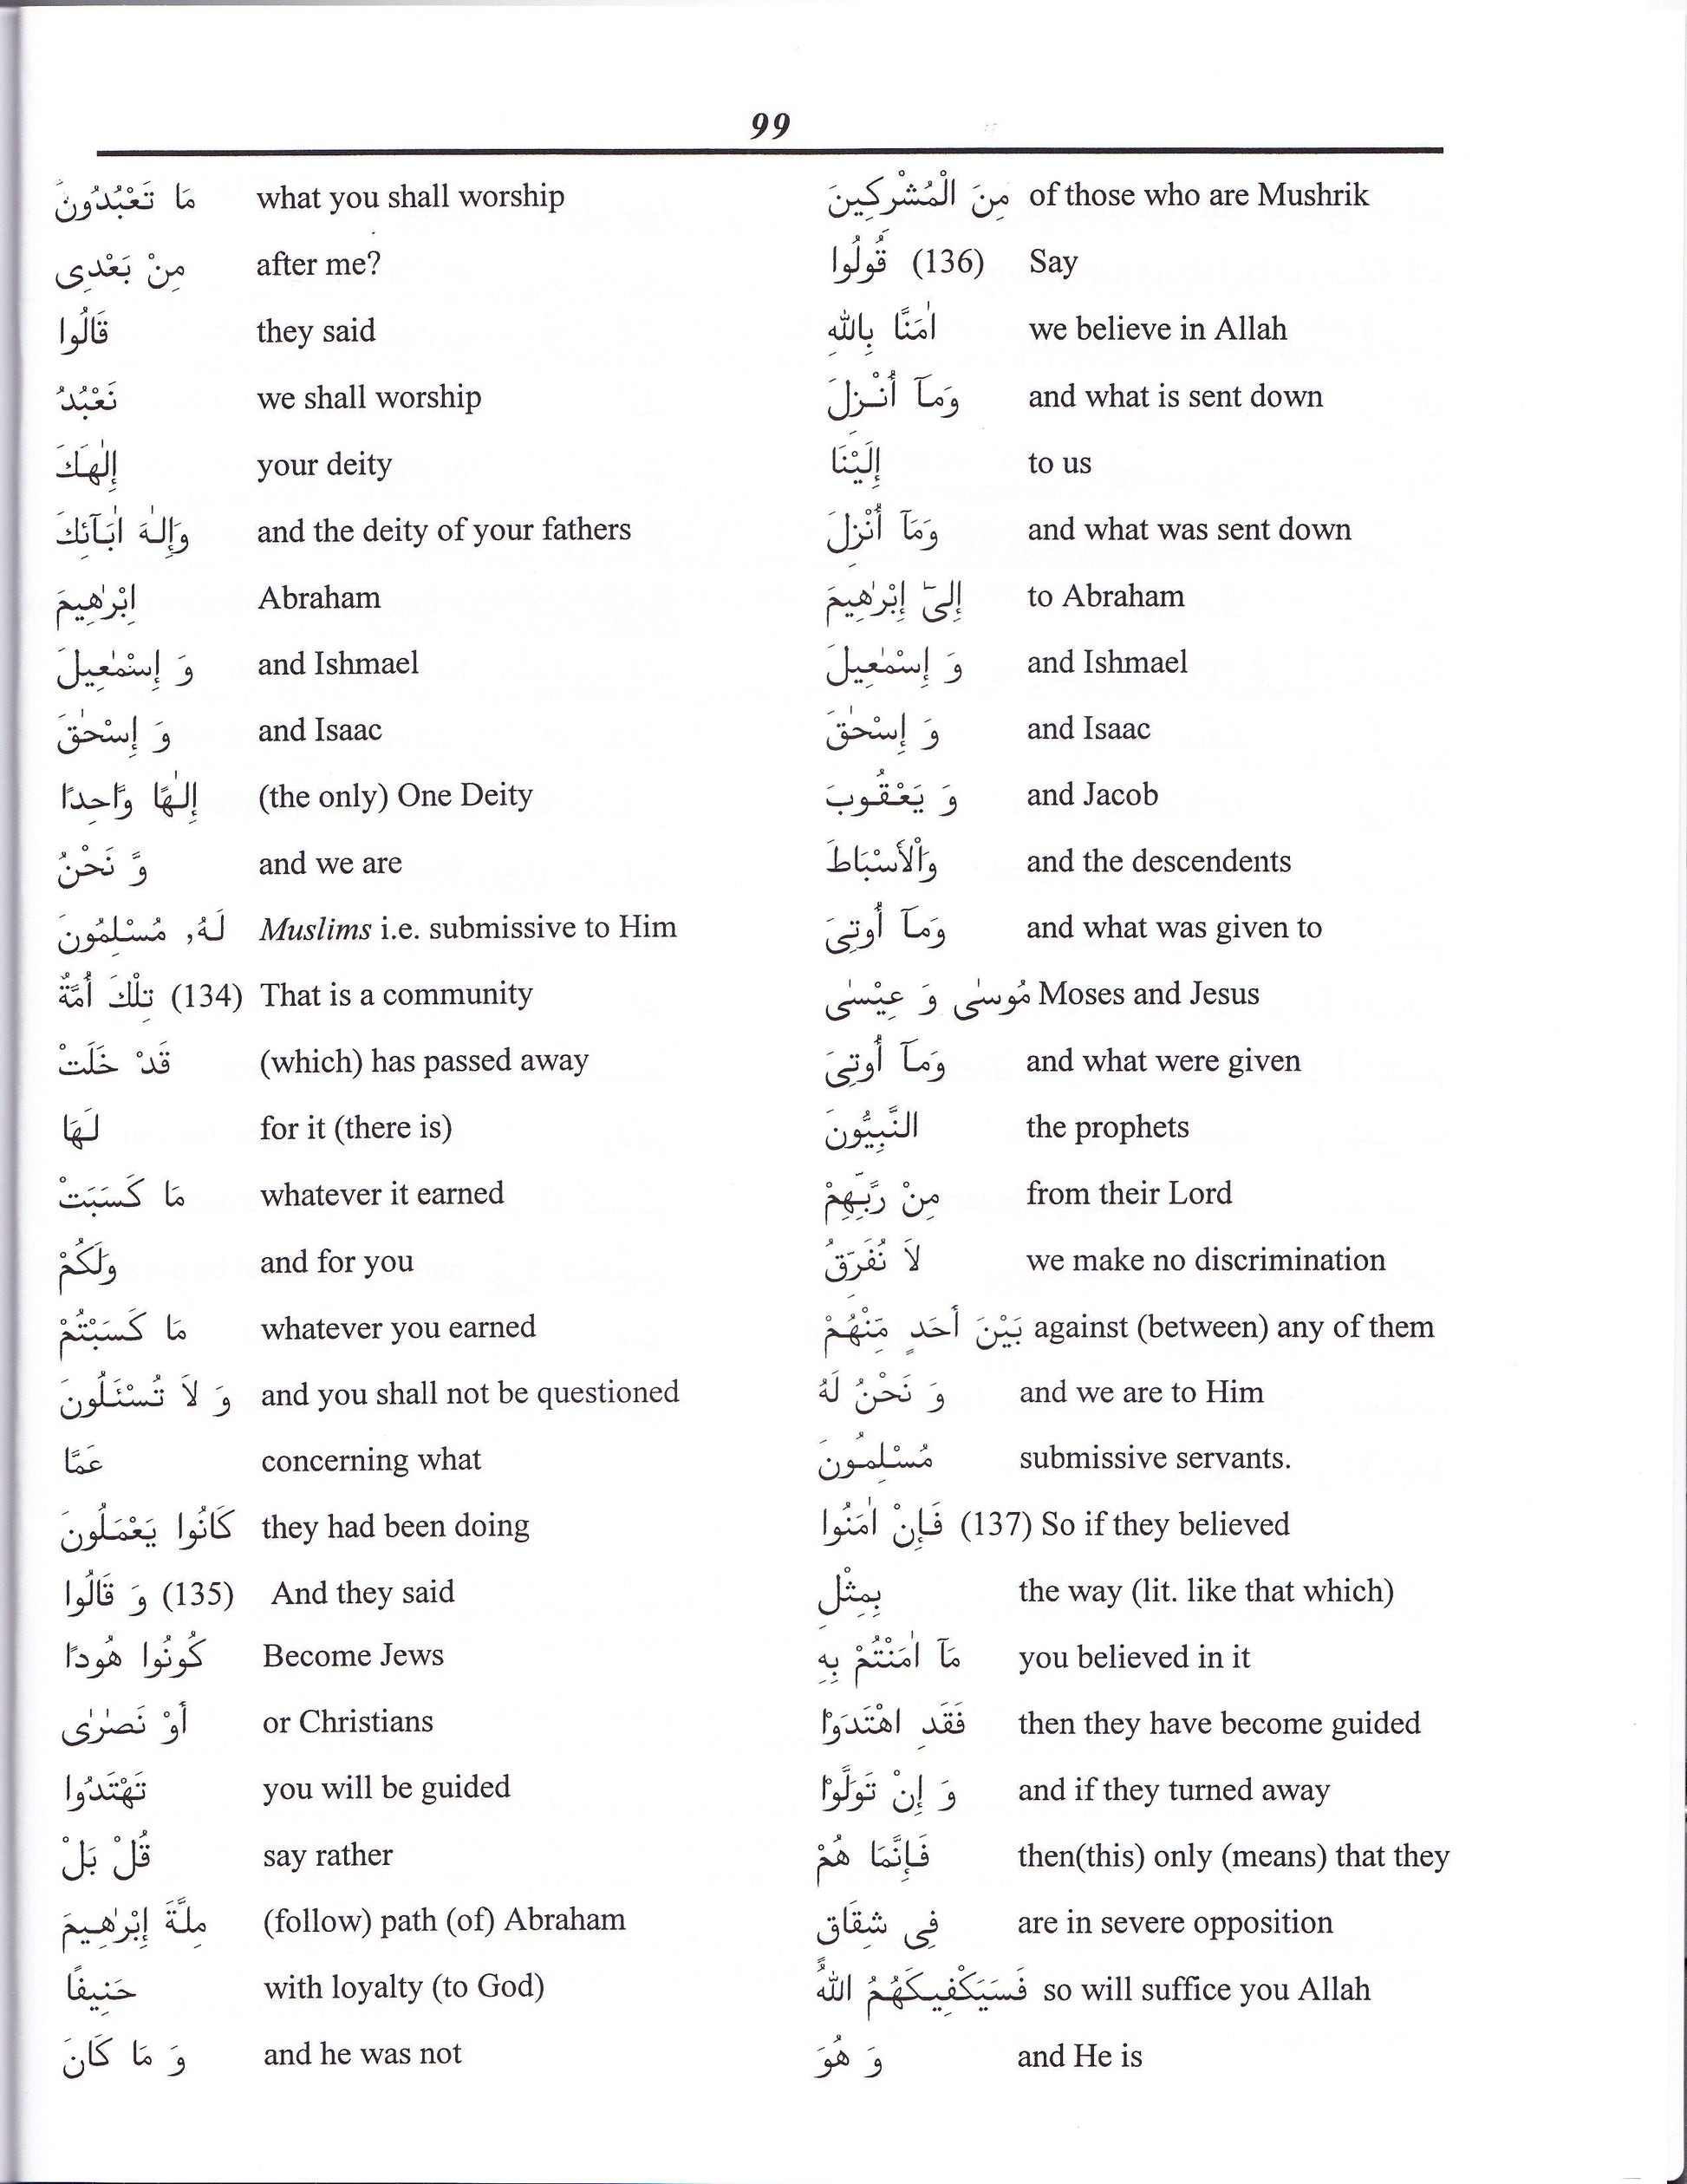 99
مَا تَعْبُدُونَ what you shall worship
مِنْ بَعْدِى after me?
قَالُوا they said
نَعْبُدُ we shall worship
إِلٰهَكَ your deity
وَإِلٰهَ اٰبَآئِكَ and the deity of your fathers
اِبْرٰهِيمَ Abraham
وَ إِسْمٰعِيلَ and Ishmael
وَ إِسْحٰقَ and Isaac
إِلٰهًا وَّاحِدًا (the only) One Deity
وَّ نَحْنُ and we are
لَهُ, مُسْلِمُونَ Muslims i.e. submissive to Him
تِلْكَ أُمَّةٌ (134) That is a community
قَدْ خَلَتْ (which) has passed away
لَهَا for it (there is)
مَا كَسَبَتْ whatever it earned
وَلَكُمْ and for you
مَا كَسَبْتُمْ whatever you earned
وَ لاَ تُسْئَلُونَ and you shall not be questioned
عَمَّا concerning what
كَانُوا يَعْمَلُونَ they had been doing
وَ قَالُوا (135) And they said
كُونُوا هُودًا Become Jews
أَوْ نَصٰرٰى or Christians
تَهْتَدُوا you will be guided
قُلْ بَلْ say rather
مِلَّةَ إِبْرٰهِيمَ (follow) path (of) Abraham
حَنِيفًا with loyalty (to God)
وَ مَا كَانَ and he was not
مِنَ الْمُشْرِكِينَ of those who are Mushrik
قُولُوا (136) Say
اٰمَنَّا بِاللهِ we believe in Allah
وَمَآ أُنْزِلَ and what is sent down
إِلَيْنَا to us
وَمَآ أُنْزِلَ and what was sent down
إِلىٓ إِبْرٰهِيمَ to Abraham
وَ إِسْمٰعِيلَ and Ishmael
وَ إِسْحٰقَ and Isaac
وَ يَعْقُوبَ and Jacob
وَالْأَسْبَاطَ and the descendents
وَمَآ أُوتِىَ and what was given to
مُوسٰى وَ عِيْسٰى Moses and Jesus
وَمَآ أُوتِىَ and what were given
النَّبِيُّونَ the prophets
مِنْ رَّبِّهِمْ from their Lord
لاَ نُفَرِّقُ we make no discrimination
بَيْنَ أَحَدٍ مِّنْهُمْ against (between) any of them
وَ نَحْنُ لَهُ and we are to Him
مُسْلِمُونَ submissive servants.
فَإِنْ اٰمَنُوا (137) So if they believed
بِمِثْلِ the way (lit. like that which)
مَآ اٰمَنْتُمْ بِهِ you believed in it
فَقَدِ اهْتَدَوْا then they have become guided
وَ إِنْ تَوَلَّوْا and if they turned away
فَإِنَّمَا هُمْ then(this) only (means) that they
فِى شِقَاق are in severe opposition
فَسَيَكْفِيكَهُمُ اللهُ so will suffice you Allah
وَ هُوَ and He is